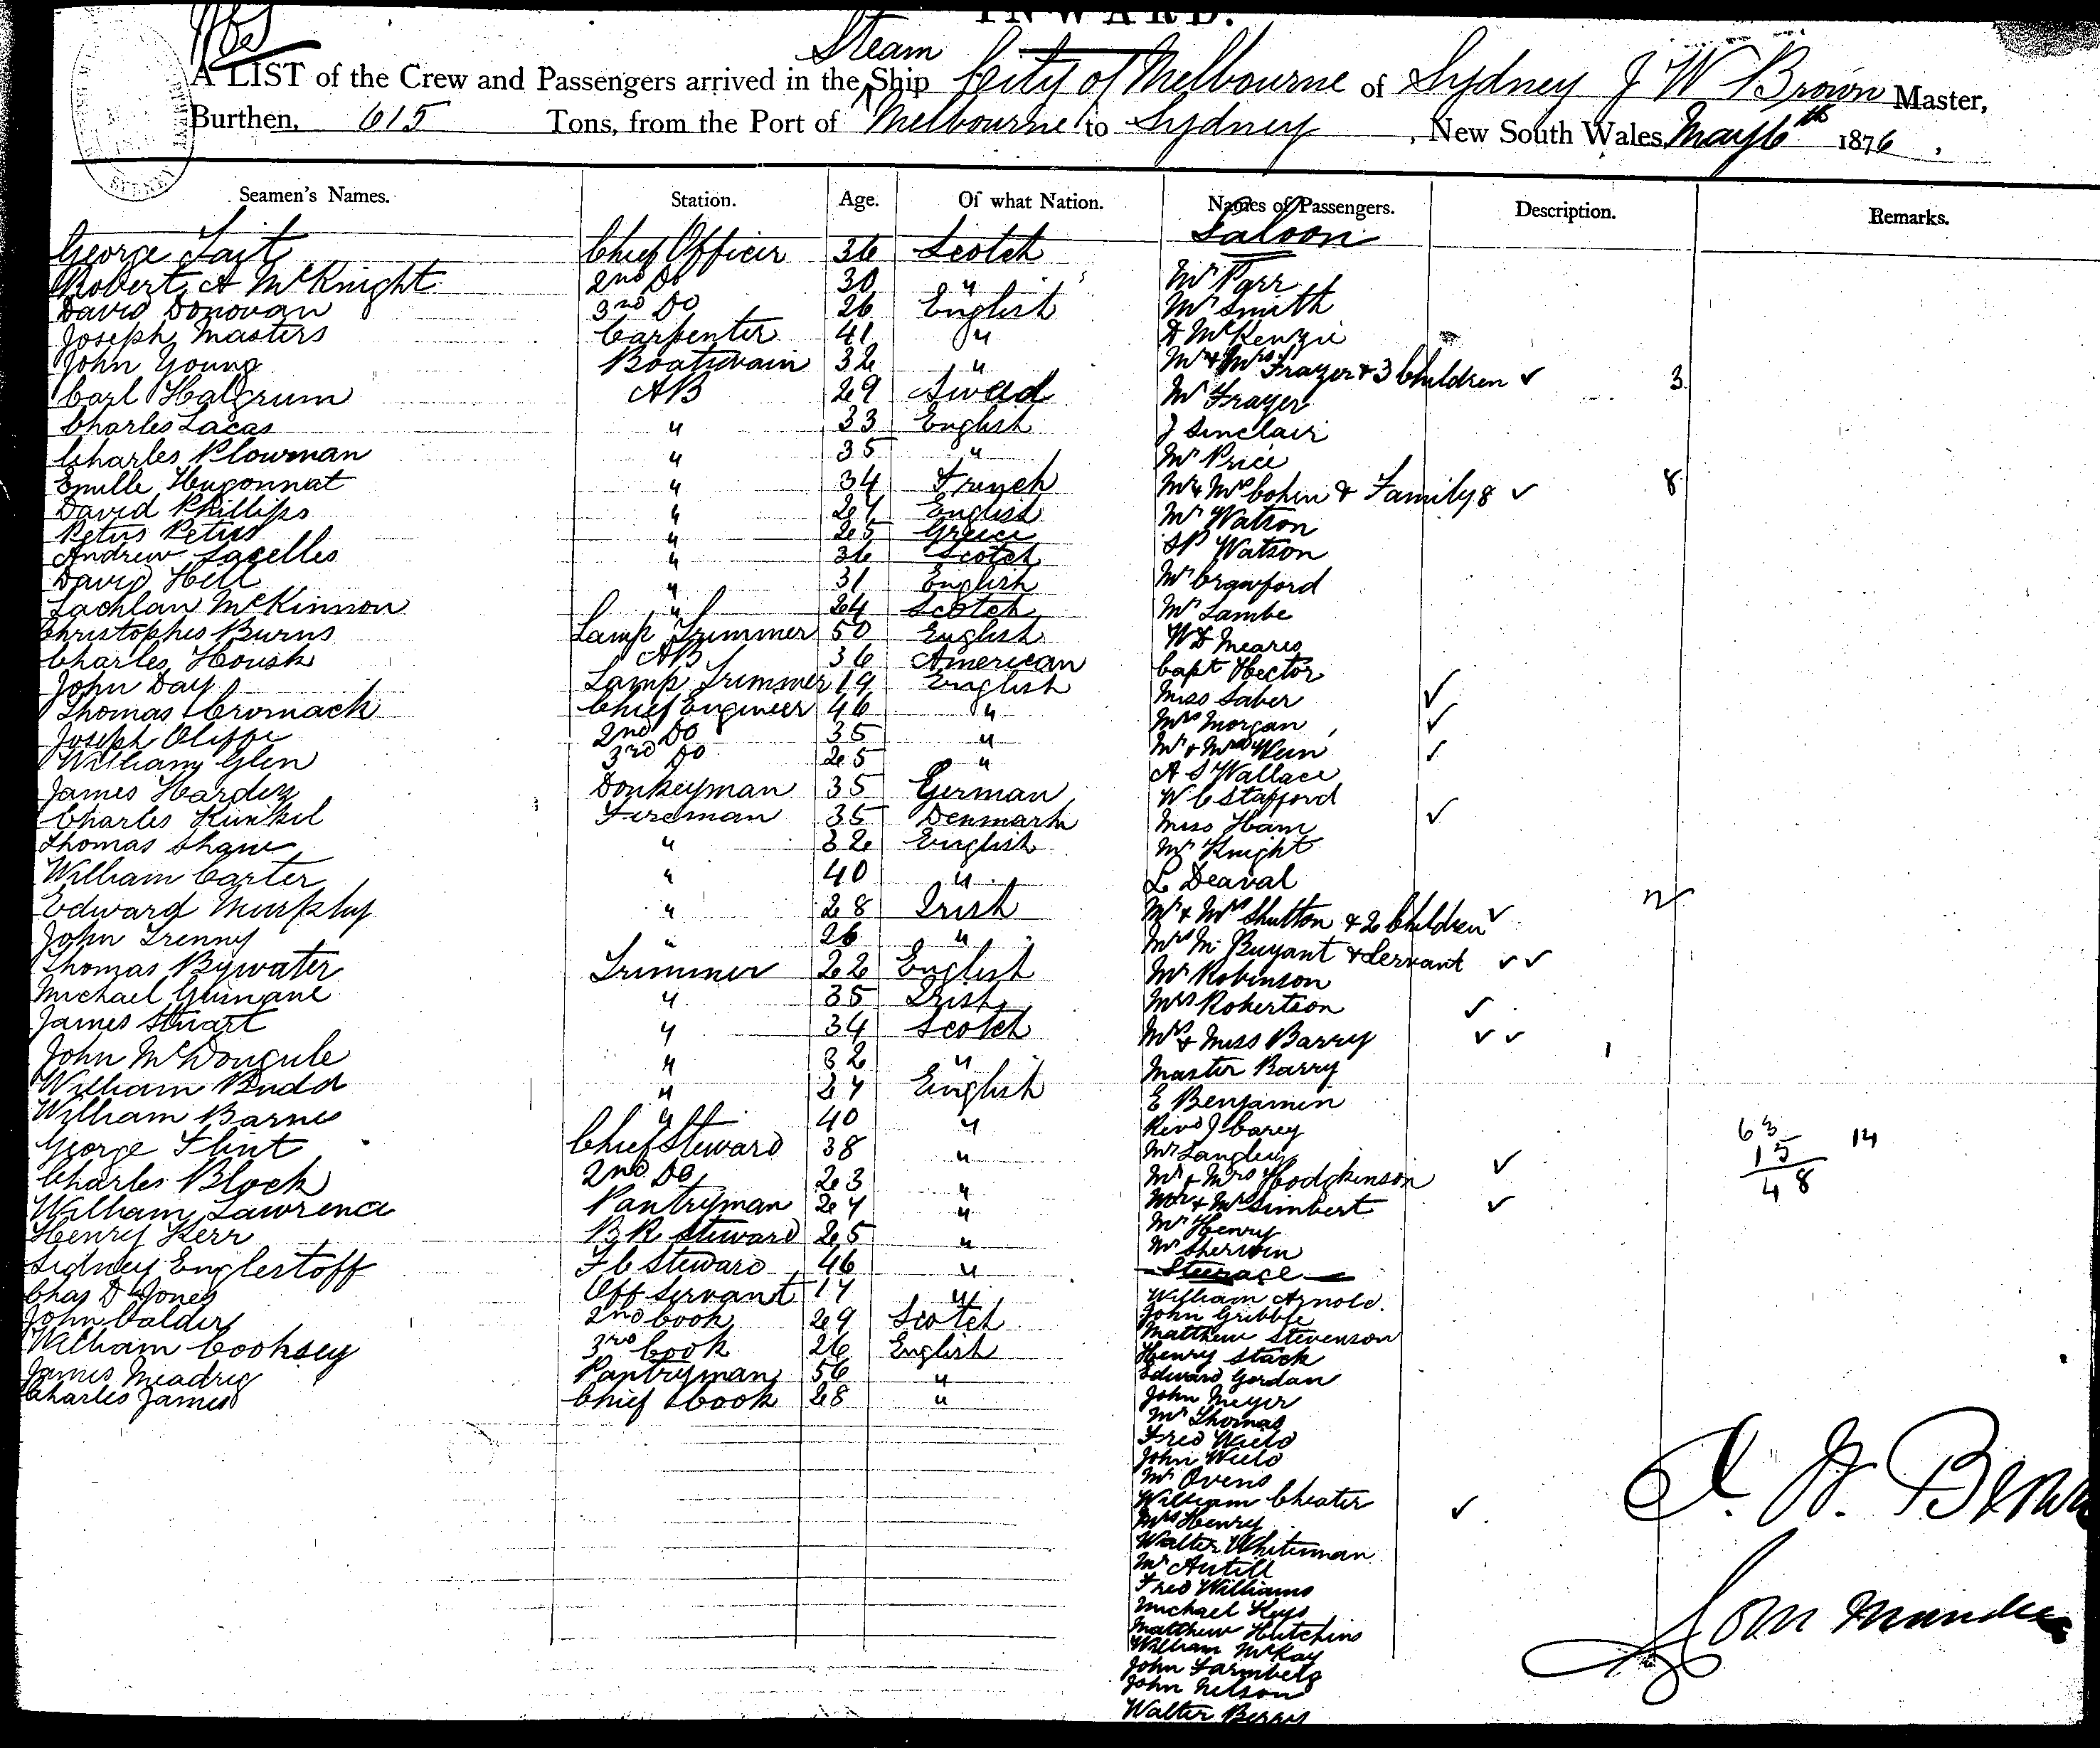 INWARD.
Steam
A LIST of the Crew and Passengers arrived in the Ship City of Melbourne of Sydney J W Brown Master,
Burthen, 615 Tons, from the Port of Melbourne to Sydney, New South Wales, May 6th 1876.
Seamen's Names. Station. Age. Of what Nation. Names of Passengers. Description. Remarks.
Saloon
George Tait Chief Officer 36 Scotch
Robert A McKnight 2nd Do 30 " Mr Parr
David Donovan 3rd Do 26 English Mr Smith
Joseph Masters Carpenter 41 " D McKenzie
John Young Boatswain 32 " Mr & Mrs Frazer & 3 Children ✓ 3
Carl Halgrum AB 29 Swed Mr Frazer
Charles Lacas " 33 English J Sinclair
Charles Plowman " 35 " Mr Price
Emille Hugonnat " 34 French Mr & Mrs Cohen & Family 8 ✓ 8
David Phillips " 27 English Mr Watson
Petus Petus " 25 Greece Watson
Andrew Lacelles " 36 Scotch Mr Crawford
David Hell " 31 English Mr Lambe
Lachlan McKinnon " 24 Scotch W D Meares
Christopher Burns Lamp Trimmer 50 English Capt Hector
Charles Housk AB 36 American Miss Saber ✓
John Day Lamp Trimmer 19 English Mrs Morgan ✓
Thomas Cromack Chief Engineer 46 " Mr & Mrs Wein ✓
Joseph Oliffe 2nd Do 35 " A S Wallace
William Glen 3rd Do 25 " W C Stafford
James Harden Donkeyman 35 German Miss Ham ✓
Charles Kunkel Fireman 35 Denmark Mr Knight
Thomas Shane " 32 English L Deaval
William Carter " 40 " Mr & Mrs Shutton & 2 Children ✓ 2
Edward Murphy " 28 Irish Mrs M Bryant & Servant ✓ ✓
John Trenny " 26 " Mr Robinson
Thomas Bywater Trimmer 22 English Mrs Robertson ✓
Michael Guinane " 35 Irish Mrs & Miss Barry ✓ ✓
James Stuart " 34 Scotch Master Barry 1
John McDougule " 32 " E Benjamin
William Budd " 27 English Revd J Carey
William Barnes " 40 " Mr Langley
George Flint Chief Steward 38 " Mr & Mrs Hodgkinson ✓
Charles Block 2nd Do 23 " Mr & Mrs Simbert ✓
William Lawrence Pantryman 27 " Mr Henry
Henry Kerr B R Steward 25 " Mr Sherwin
Sidney Englestoff F C Steward 46 " Steerage
Chas D Jones Off Servant 17 " William Arnold.
John Calder 2nd Cook 29 Scotch John Gribble
William Cooksey 3rd Cook 26 English Matthew Stevenson
James Meadrig Pantryman 56 " Henry Stack
Charles James Chief Cook 28 " Edward Gordan
John Meyer
Mr Thomas
Fred Wield
John Wield
Mr Ovens
William Cheater
Mrs Henry ✓
Walter Whiteman
Mr Antill
Fred Williams
Michael Keys
Matthew Hutchins
William McKay
John Farmbelg
John Nelson
Walter Berry
63 14
15
48
J. W. Brown
Commander